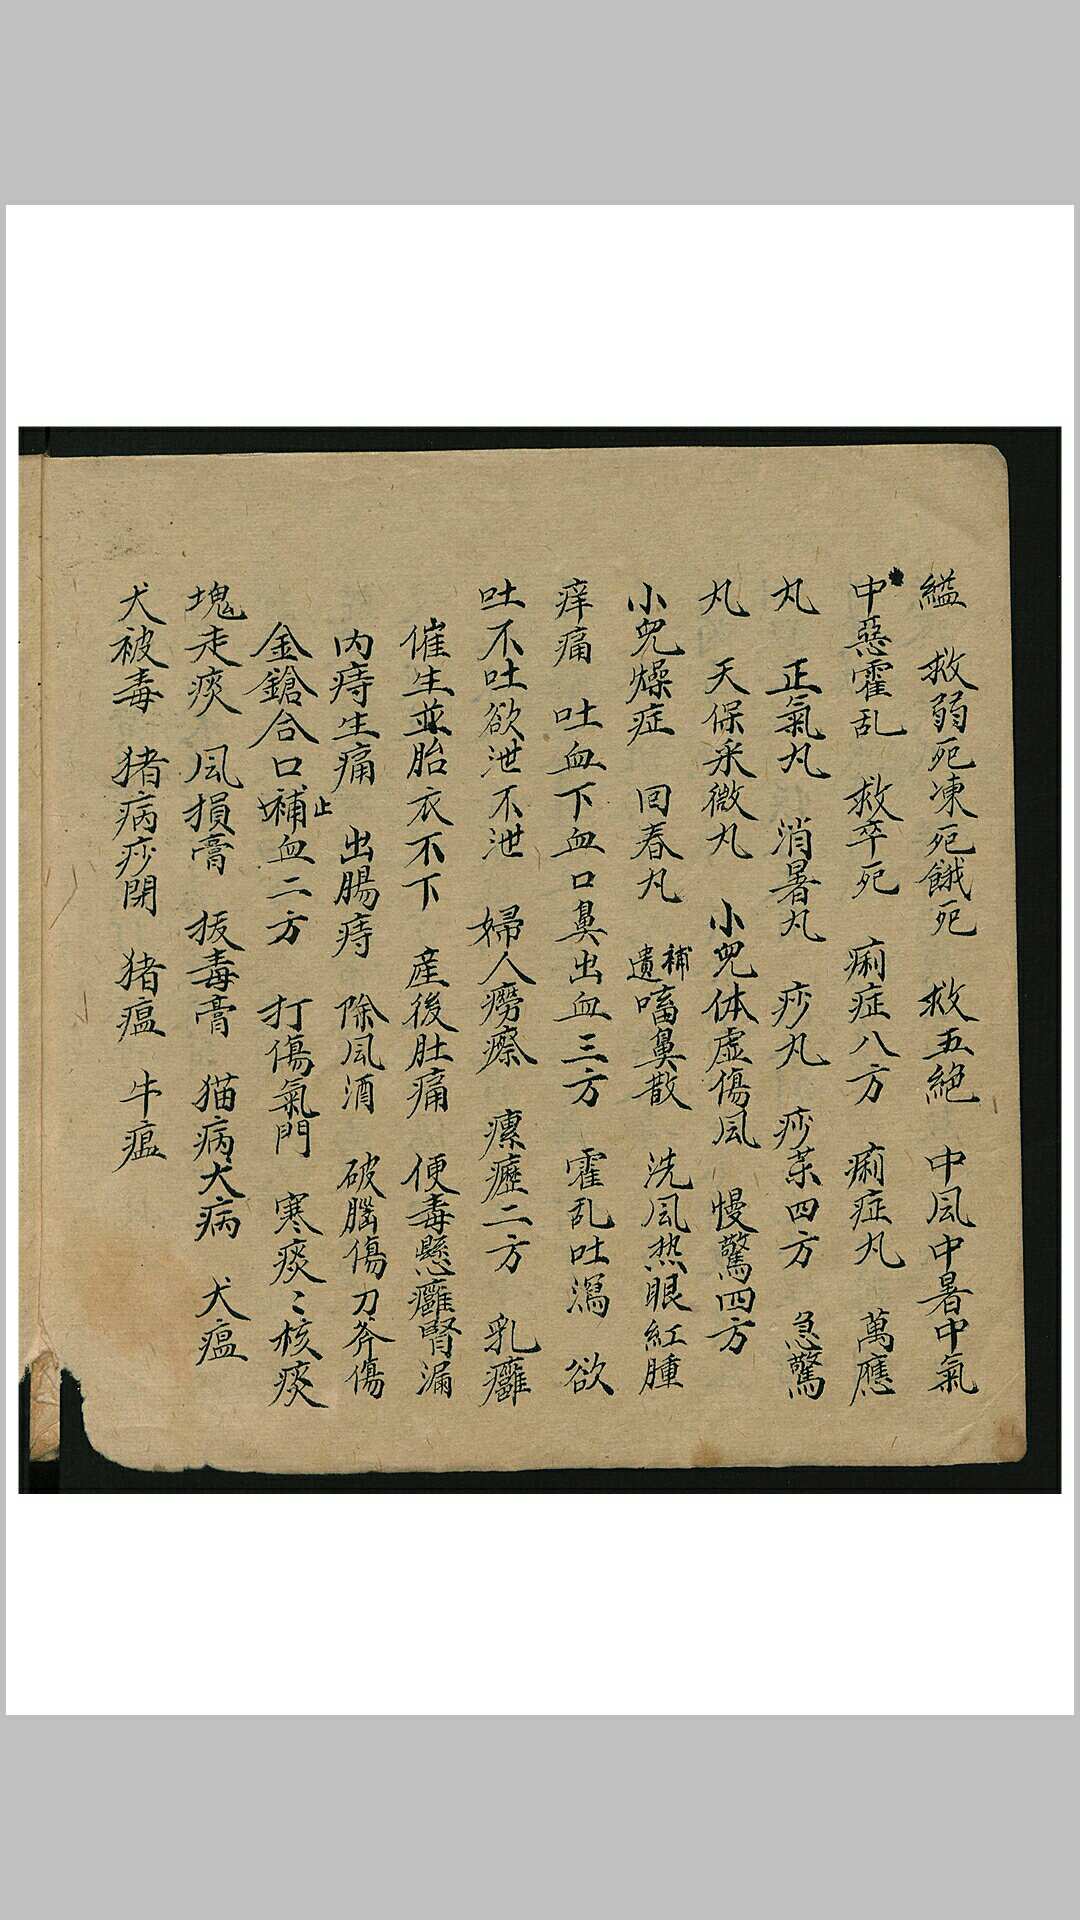 縊 救溺死凍死餓死 救五絕 中風中暑中氣
中惡霍乱 救卒死 痢症八方 痢症丸 萬應
丸 正氣丸 消暑丸 痧丸 痧茶四方 急驚
丸 天保采微丸 小兒体虛傷風 慢驚四方
小兒燥症 回春丸 補遺㗜鼻散 洗風热眼紅腫
痒痛 吐血下血口鼻出血三方 霍乱吐瀉 欲
吐不吐欲泄不泄 婦人癆瘵 瘰癧二方 乳癰
催生並胎衣不下 產後肚痛 便毒懸癰腎漏
內痔生痛 出腸痔 除風酒 破腦傷刀斧傷
金鎗合口補止血二方 打傷氣門 寒痰〻核痰
塊走痰 風損膏 拔毒膏 猫病犬病 犬瘟
犬被毒 猪病痧閉 猪瘟 牛瘟